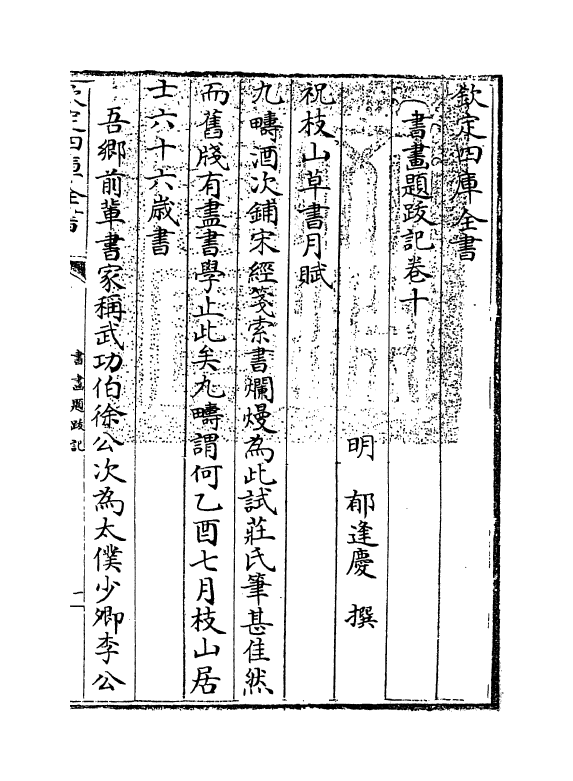 欽定四庫全書
書畫題跋記卷十
明 郁逢慶 撰
祝枝山草書月賦
九疇酒次鋪宋經箋索書爛熳為此試莊氏筆甚佳然
而舊牋有盡書學止此矣九疇謂何乙酉七月枝山居
士六十六歲書
吾鄉前輩書家稱武功伯徐公次為太僕少卿李公
欽定四庫全書
書畫題跋記
一